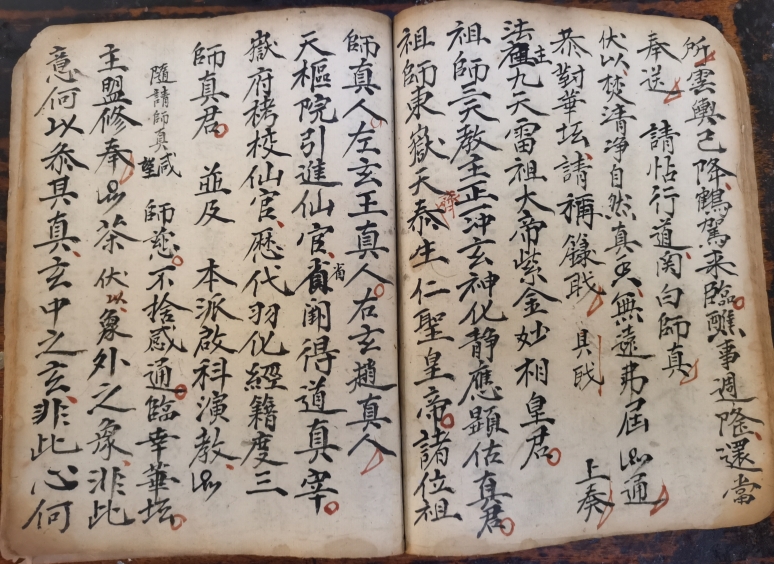 所雲輿已降鶴駕来臨醮事週隆還當
奉送 請帖行道関白師真
伏以焚清净自然真香無遠弗届以通
恭對華坛請稱籙戝 具戝 上奏
法主九天雷祖大帝紫金妙相皇君
祖師三天教主正冲玄神化静應顕佑真君
祖師東嶽天泰生仁聖皇帝諸位祖
師真人左玄王真人右玄趙真人
天樞院引進仙官省闱得道真宰
嶽府栲校仙官歷代羽化經籍度三
師真君 並及 本派啟科演教以
隨請師真咸望 師慈不捨感通臨幸華坛
主盟修奉以茶 伏以象外之象非此
意何以恭其真玄中之玄非此心何